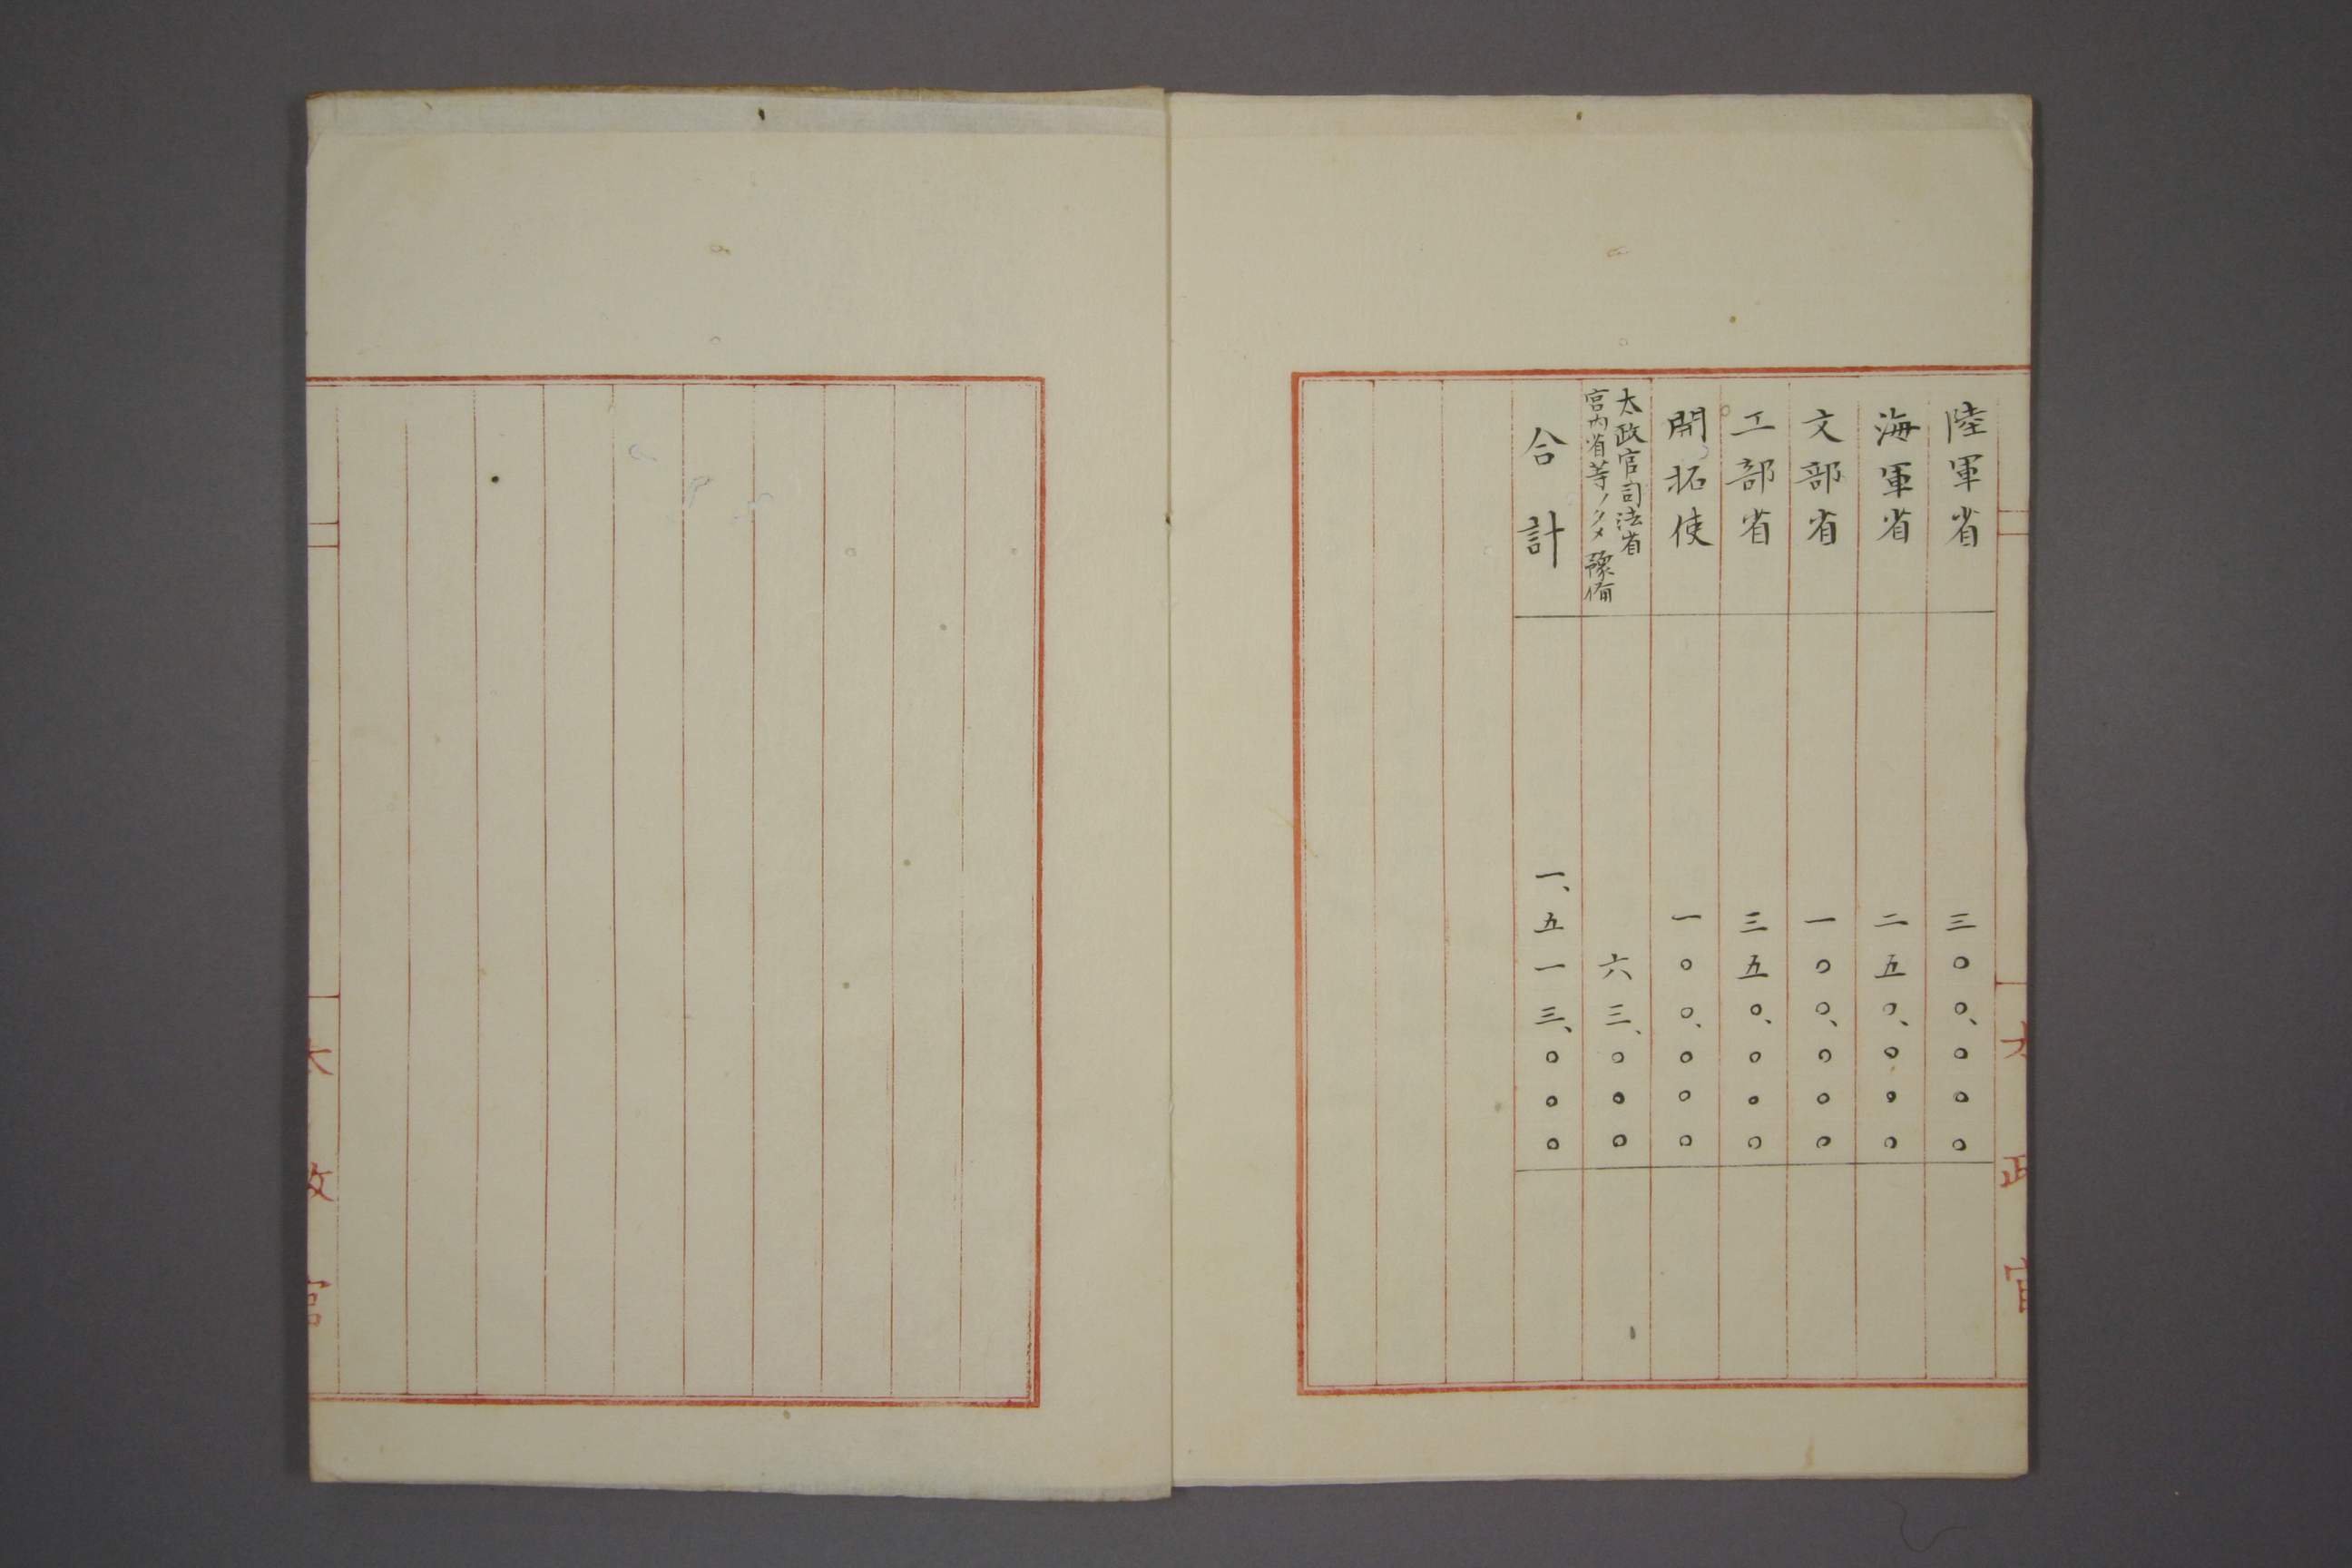 陸軍省 三〇〇、〇〇〇
海軍省 二五〇、〇〇〇
文部省 一〇〇、〇〇〇
工部省 三五〇、〇〇〇
開拓使 一〇〇、〇〇〇
太政官司法省
宮内省等ノタメ豫備 六三、〇〇〇
合計 一、五一三、〇〇〇
太政官
太政官